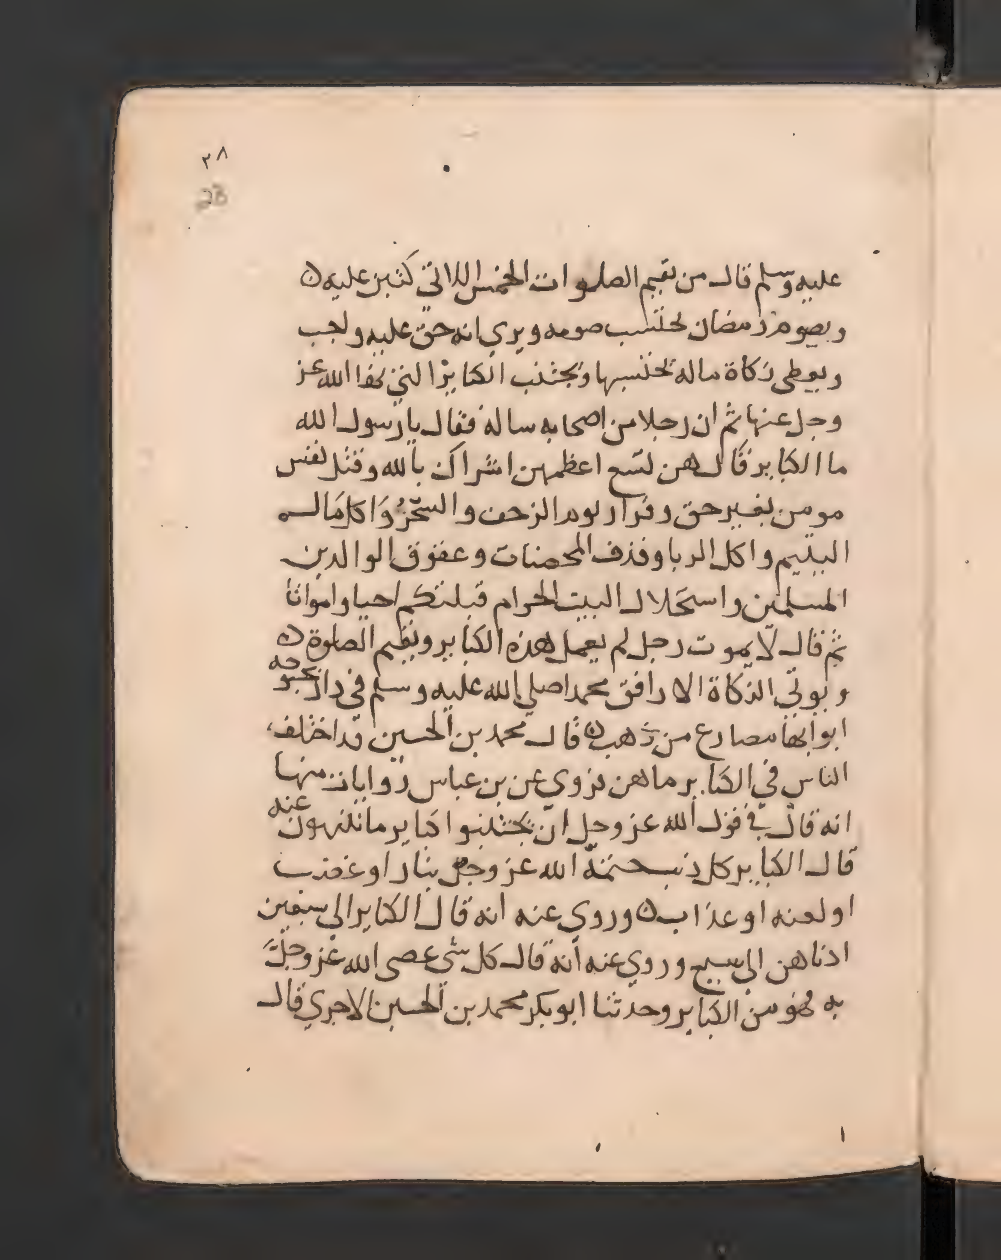 ٢٨
28
عليه وسلم قال من يقيم الصلوات الخمس اللاتي كتبن عليه ه
ويصوم رمضان يحتسب صومه ويري انه حق عليه واجب
ويعطي زكاة ماله يحتسبها ويجتنب الكبائر التي نها الله عز
وجل عنها ثم ان رجلا من اصحابه ساله فقال يا رسول الله
ما الكبائر قال هن تسع اعظمهن اشراك بالله وقتل نفس
مومن بغير حق وفرار يوم الزحف والسحر واكل مال
اليتيم واكل الربا وقذف المحصنات وعقوق الوالدين
المسلمين واستحلال البيت الحرام قبلتكم احيا وامواتا
ثم قال لا يموت رجل لم يعمل هذه الكبائر ويقيم الصلوة ه
ويوتي الزكاة الا رافق محمدا صلي الله عليه وسلم في دار
ابوابها مصارع من ذهب ه قال محمد بن الحسين قد اختلف
الناس في الكبائر ما هن فروي عن بن عباس روايات منها
انه قال في قول الله عز وجل ان تجتنبوا كباير ما تنهون عنه
قال الكباير كل ذنب ختمه الله عز وجل بنار او غضب
او لعنه او عذاب ه وروي عنه انه قال الكباير الي سبعين
ادناهن الي سبع وروي عنه انه قال كل شي عصي الله عز وجل
به فهو من الكباير وحدثنا ابو بكر محمد بن الحسين الاجري قال